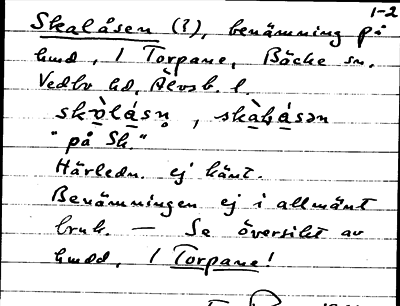 1-2
Skalåsen (?), benämning på
hmd, / Torpane, Bäcke sn.
Vedbo hd, Älvsb. l.
skò̱lá̱sn̥, skà̱lá̱sən
"på Sk."
Härledn. ej känt.
Benämningen ej i allmänt
bruk. — Se översikt av
hmdd, / Torpane!